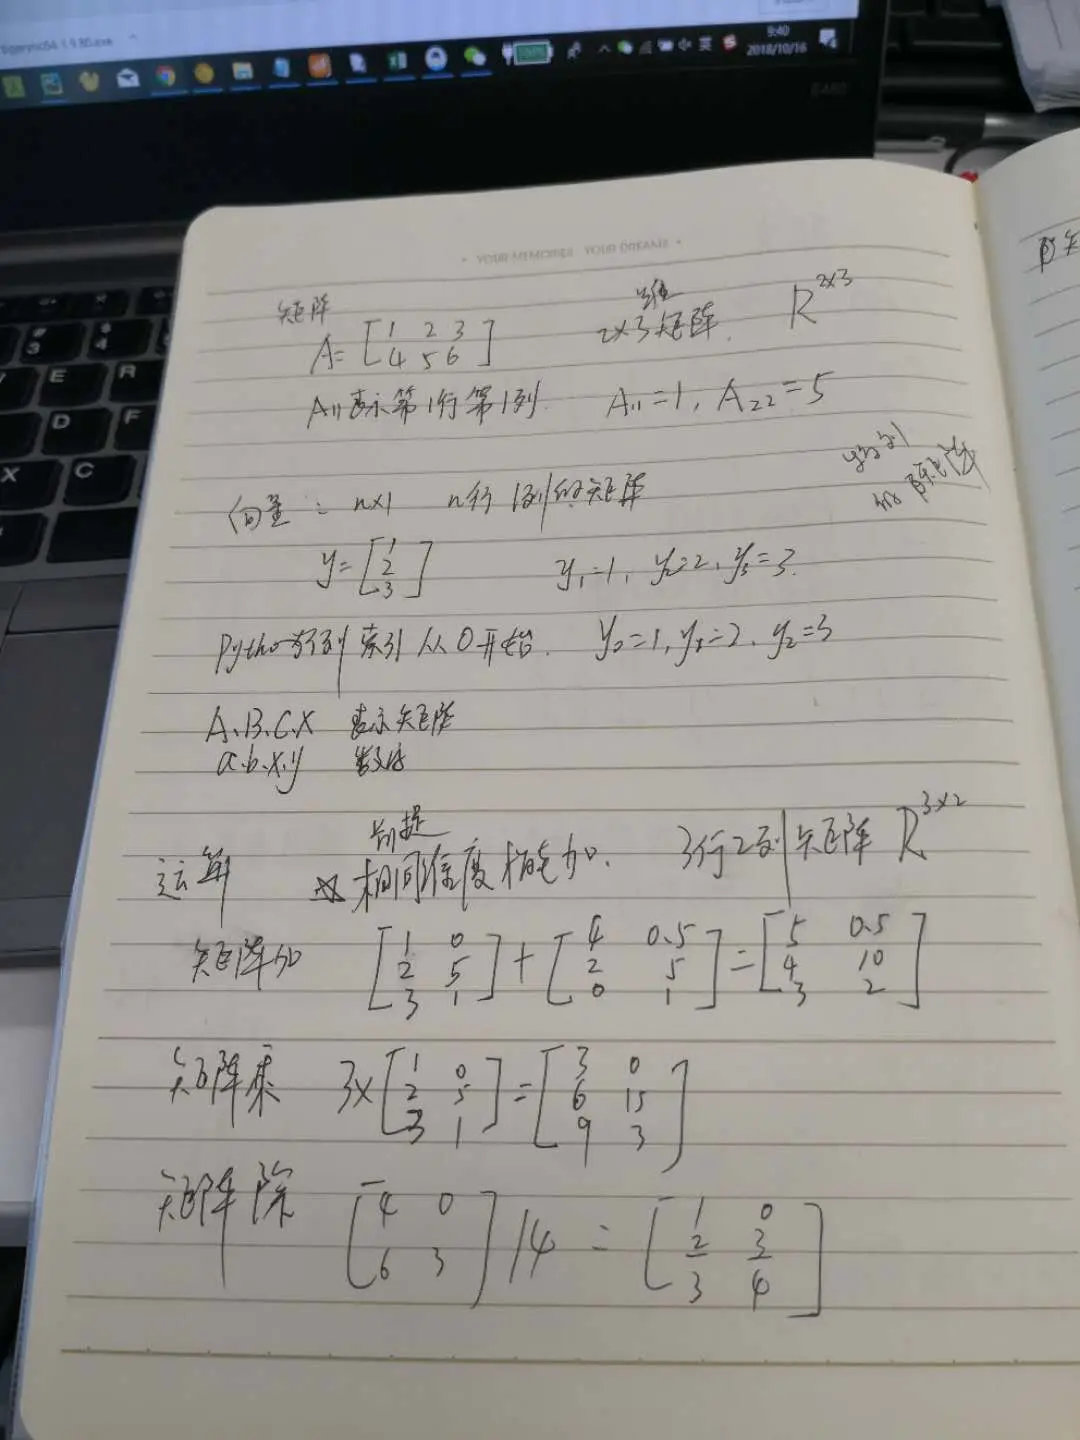 9:40
2018/10/16
英
E480
3
4
E
R
D
F
X
C
YOUR MEMORIES YOUR DREAMS
矩阵
A= [1 2 3
4 5 6]
维
2×3矩阵. R^{2×3}
A₁₁表示第1行第1列. A₁₁=1, A₂₂=5
向量: n×1 n行1列的矩阵
y= [1
2
3]
y₁=1, y₂=2, y₃=3.
Python 行列索引从0开始. y₀=1, y₁=2, y₂=3
A.B.C.X 表示矩阵
a.b.x.y
前提
运算 相同维度才能加. 3行2列矩阵 R^{3×2}
矩阵加 [1 0
2 5
3 1] + [4 0.5
2 5
0 1] = [5 0.5
4 10
3 2]
矩阵乘 3× [1 0
2 5
3 1] = [3 0
6 15
9 3]
矩阵除 [4 0
6 3] /4 = [1 0
2/3 3/4]